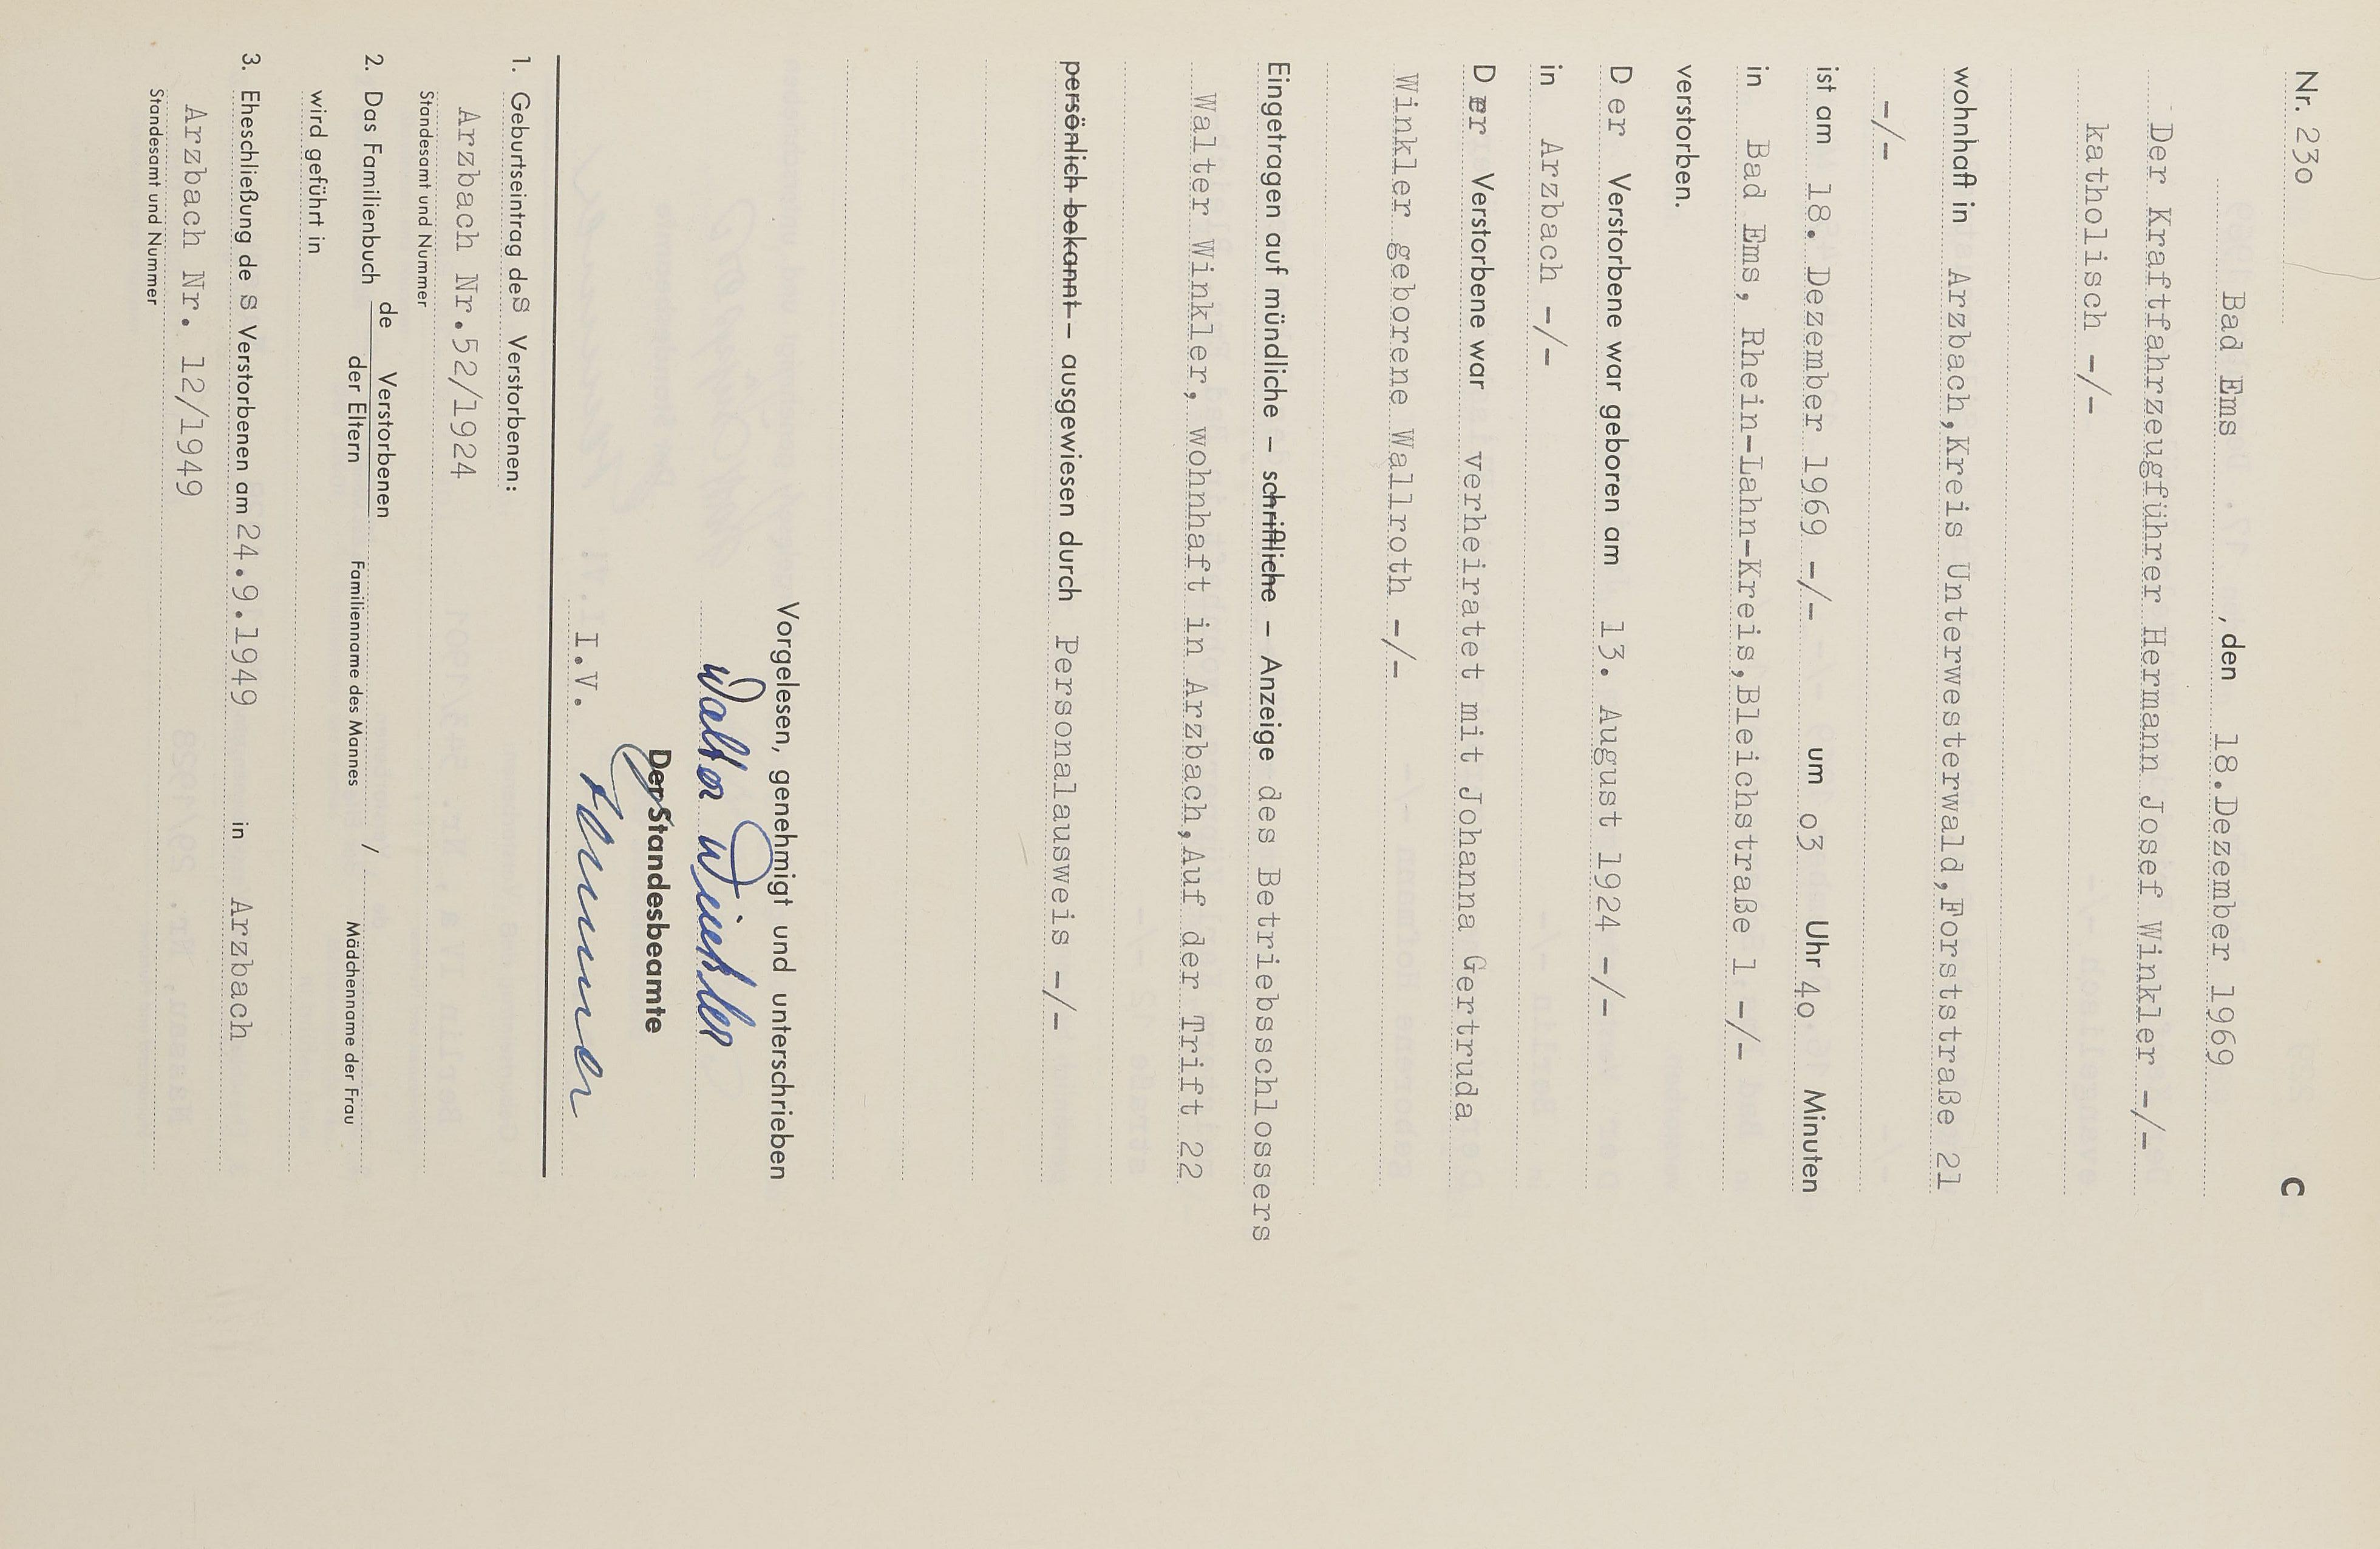 Nr. 23o
C
Bad Ems , den 18.Dezember 1969
Der Kraftfahrzeugführer Hermann Josef Winkler -/-
katholisch -/-
wohnhaft in Arzbach,Kreis Unterwesterwald,Forststraße 21
-/-
ist am 18. Dezember 1969 -/- um o3 Uhr 4o Minuten
in Bad Ems, Rhein-Lahn-Kreis,Bleichstraße 1 -/-
verstorben.
D er Verstorbene war geboren am 13. August 1924 -/-
in Arzbach -/-
D er Verstorbene war verheiratet mit Johanna Gertruda
Winkler geborene Wallroth -/-
Eingetragen auf mündliche – schriftliche – Anzeige des Betriebsschlossers
Walter Winkler, wohnhaft in Arzbach,Auf der Trift 22
persönlich bekannt – ausgewiesen durch Personalausweis -/-
Vorgelesen, genehmigt und unterschrieben
Walter Winkler
Der Standesbeamte
I.V.
1. Geburtseintrag des Verstorbenen:
Arzbach Nr.52/1924
Standesamt und Nummer
2. Das Familienbuch de Verstorbenen
der Eltern
/
Familienname des Mannes Mädchenname der Frau
wird geführt in
3. Eheschließung de s Verstorbenen am 24.9.1949 in Arzbach
Arzbach Nr. 12/1949
Standesamt und Nummer